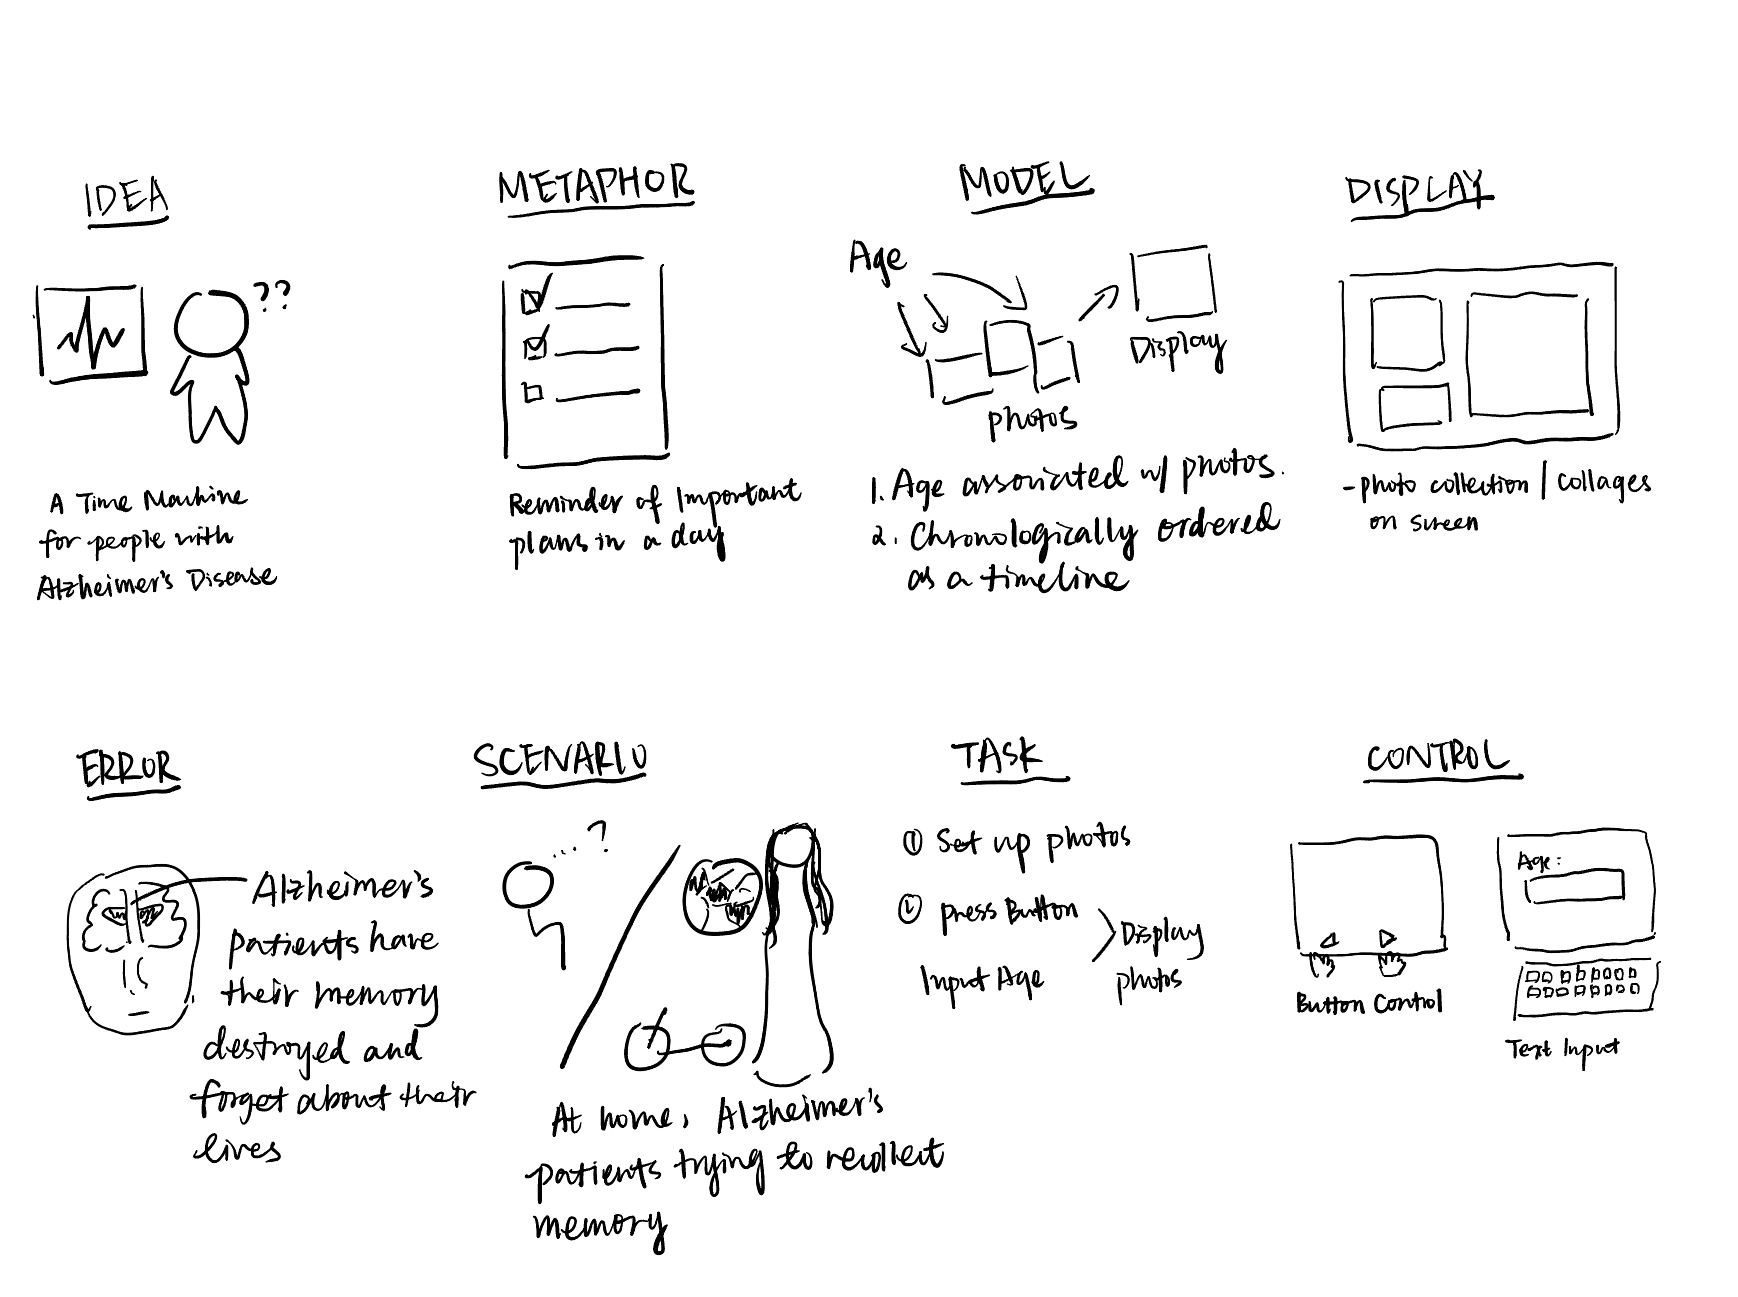 IDEA
??
A Time Machine
for people with
Alzheimer's Disease
METAPHOR
Reminder of Important
plans in a day
MODEL
Age
Display
photos
1. Age associated w/ photos.
2. Chronologically ordered
as a timeline
DISPLAY
- photo collection / collages
on screen
ERROR
Alzheimer's
patients have
their memory
destroyed and
forget about their
lives
SCENARIO
...?
At home, Alzheimer's
patients trying to recollect
memory
TASK
① Set up photos
② press Button
Input Age
Display
photos
CONTROL
Button Control
Age:
Text Input